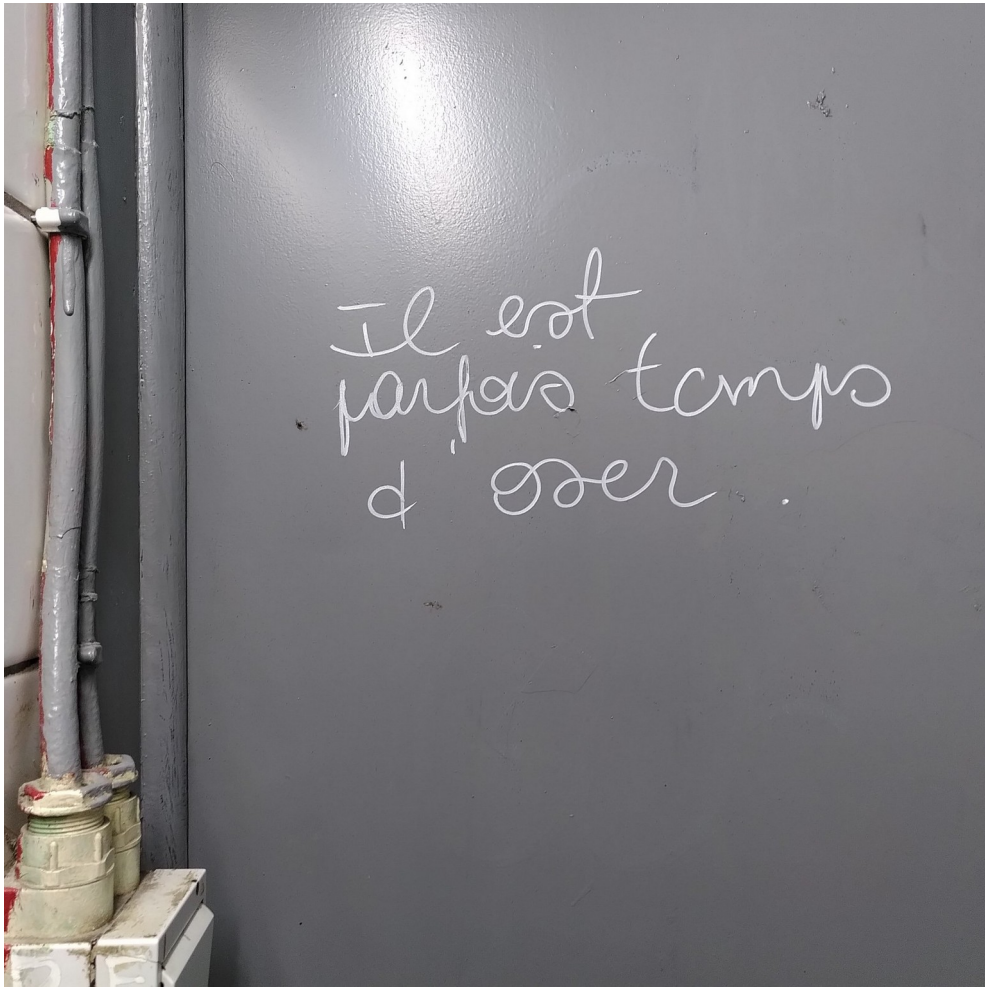 Il est
parfois temps
d'oser.